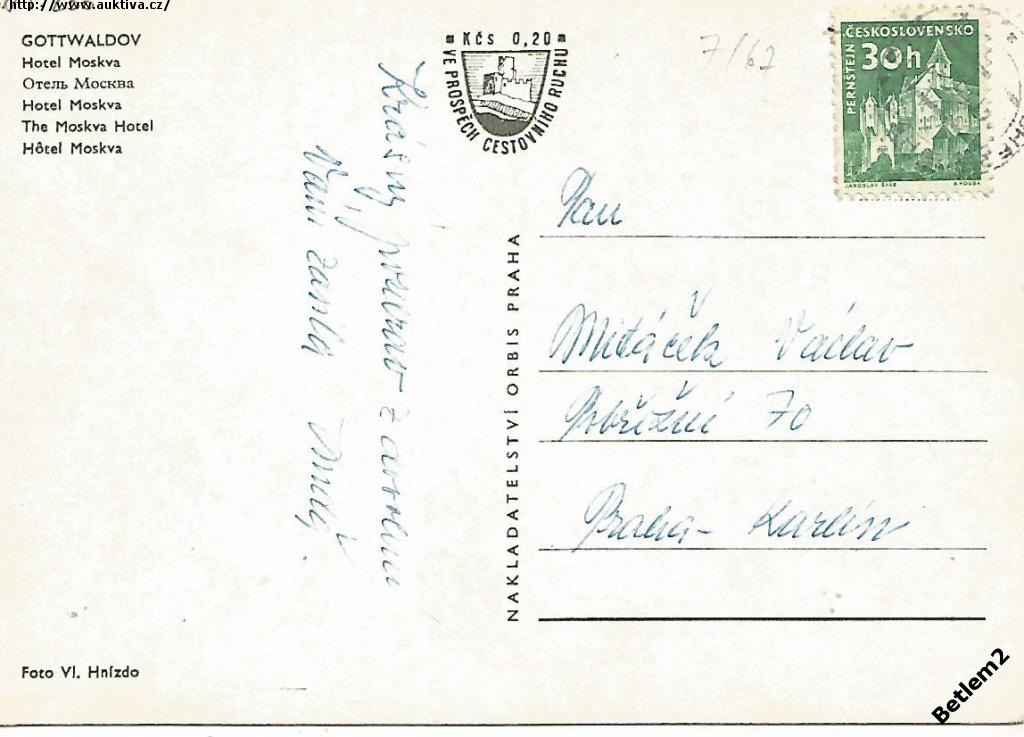 http://www.auktiva.cz/
GOTTWALDOV
Hotel Moskva
Отель Москва
Hotel Moskva
The Moskva Hotel
Hôtel Moskva
Kčs 0,20
VE PROSPĚCH CESTOVNÍHO RUCHU
7/62
ČESKOSLOVENSKO
30h
PERNŠTEJN
JAROSLAV ŠVÁB
Krásný pozdrav z dovolené
Vám zasílá
NAKLADATELSTVÍ ORBIS PRAHA
Pan
Mitáček Václav
Pobřežní 70
Praha-Karlín
Foto Vl. Hnízdo
Betlem2